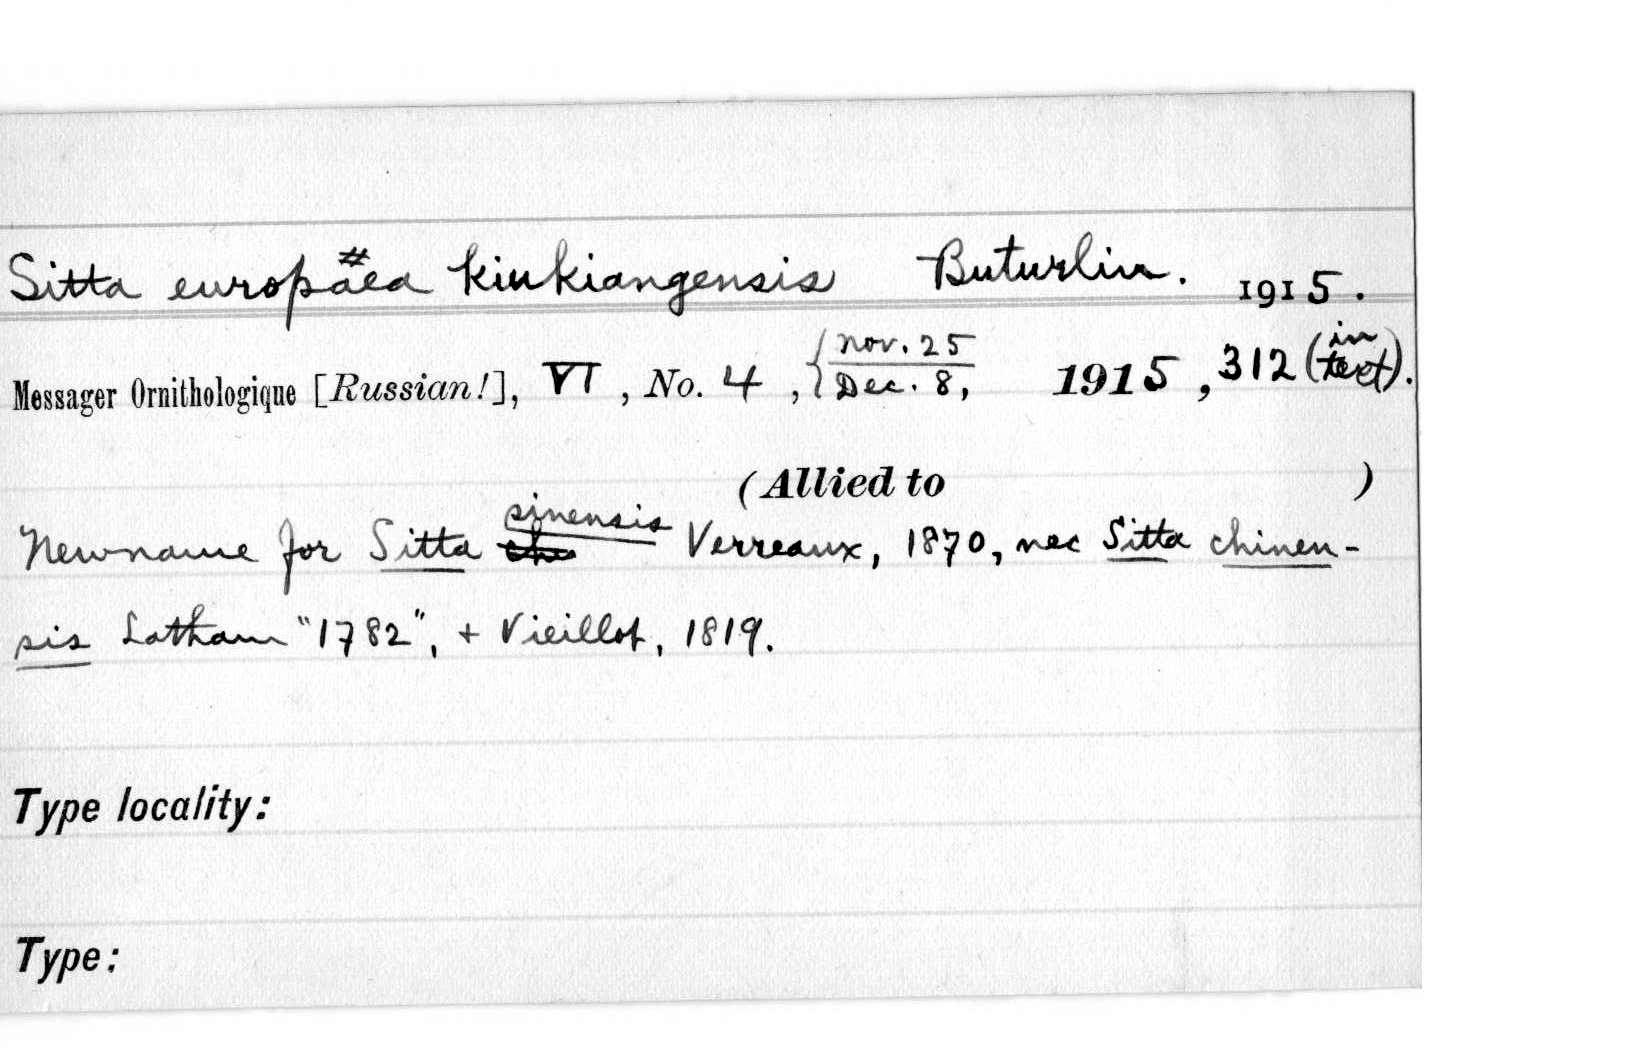 Sitta europäea kiukiangensis Buturlin. 1915.
Messager Ornithologique [Russian!], VI, No. 4, {Nov. 25 / Dec. 8, 1915, 312 (in text).
(Allied to )
New name for Sitta sinensis Verreaux, 1870, nec Sitta chinen-
sis Latham "1782", + Vieillot, 1819.
Type locality:
Type: